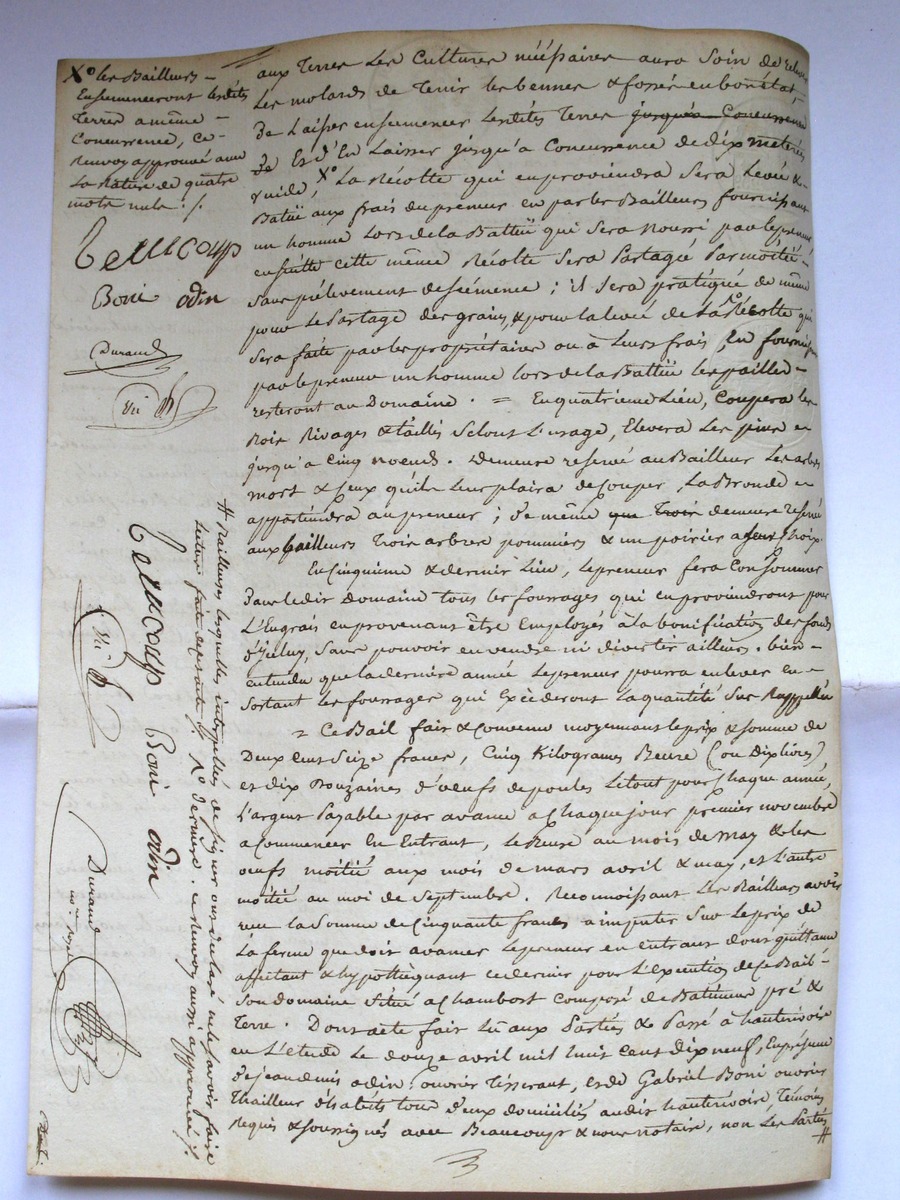 Xº les Bailleurs –
Ensemenceront lesdits
Terres a même –
Concurrence, Ce –
Renvoy approuvé avec
La Rature de quatre
mots nuls ./.
Beaucoup
Boni odin
Durand
aux Terres Les Cultures nécéssaires aura Soin de
Les molards de Tenir les bennes & fossés en bon état,
De Laisser ensemencer Lesdites Terres jusqu'a Concurrence
De Et d'En Laisser jusqu'a Concurrence de dix meterés
vuide, Xº La Récolte qui en proviendra Sera Levée & –
Batüe aux frais du preneur en par les Bailleurs fournissant
un homme Lors de La Battüe qui Sera nourri par le preneur
ensuitte cette même Récolte Sera Partagée Par moitié –
Sans prélevement de Séemence ; il Sera pratiqué de même
pour Le Partage des grains, & pour la levée de La Récolte qui
Sera faite par les propriétaires ou à Leurs frais, En fournissant
par le preneur un homme lors de La Battüe les pailles –
resteront au Domaine . = En quatrieme Lieu, Coupera les
Bois Rivages & taillis Selont L'usage, Elevera Les pins –
jusqu'a Cinq noeuds . Demeure reservé au Bailleur Les arbres
mort & Ceux quils Leur plaira de Couper, La Bronde –
appartiendra au preneur ; De même que Trois demeure reservé
aux bailleurs Trois arbres pommiers & un poirier a Leur Choix
En Cinquieme & dernier Lieu, Le preneur fera Consommer
Dans Ledit Domaine tous les fourrages qui en proviendront pour
L'Engrais en provenant être Employés à la bonification des fonds
d'yceluy, Sans pouvoir en vendre ni divertir ailleurs . bien –
entendu que la derniere année Le preneur pourra enlever En –
Sortant les fourrages qui Excèderont La quantité Sus Rappellée
= Ce Bail fait & Convenu moyennant le prix & Somme de
Deux Cent Seize francs, Cinq Kilogrames Beure (ou Dix livres)
et dix Douzaines d'oeufs de poules Le tout pour Chaque année,
L'argent Payable par avance a Chaque jour premier novembre
a Commencer En Entrant, Le Beure au mois de may & les
oeufs moitié aux mois de mars avril & may, et L'autre
moitié au moi de Septembre . Reconnoissant Les Bailleurs avoir
reçu la Somme de Cinquante francs a imputer Sur Le prix de
La ferme que doit avancer Le preneur en Entrant dont quittance
affectant & hypotthéquant ce dernier pour L'Execution de Ce Bail –
Son domaine Situé a Chambost Composé de Batiment pré &
Terre . Dont acte fait Lû aux Parties & Passé à hauterivoire
en L'étude Le douze avril mil huit Cent Dix neuf, En présence
de jean denis odin ouvrier Tisserant, et de Gabriel Boni ouvrier
Thailleur d'habits tous deux domiciliés audit hauterivoire, Témoins
Requis & Soussignés avec Beaucoup & nous notaire, non Les Parties #
# Bailleurs lesquelles interpellés de signer ont déclaré ne le savoir faire
Lecture faite
Rº derniere . Ce Renvoy aussi approuvé ./.
Beaucoup Boni odin
Durand